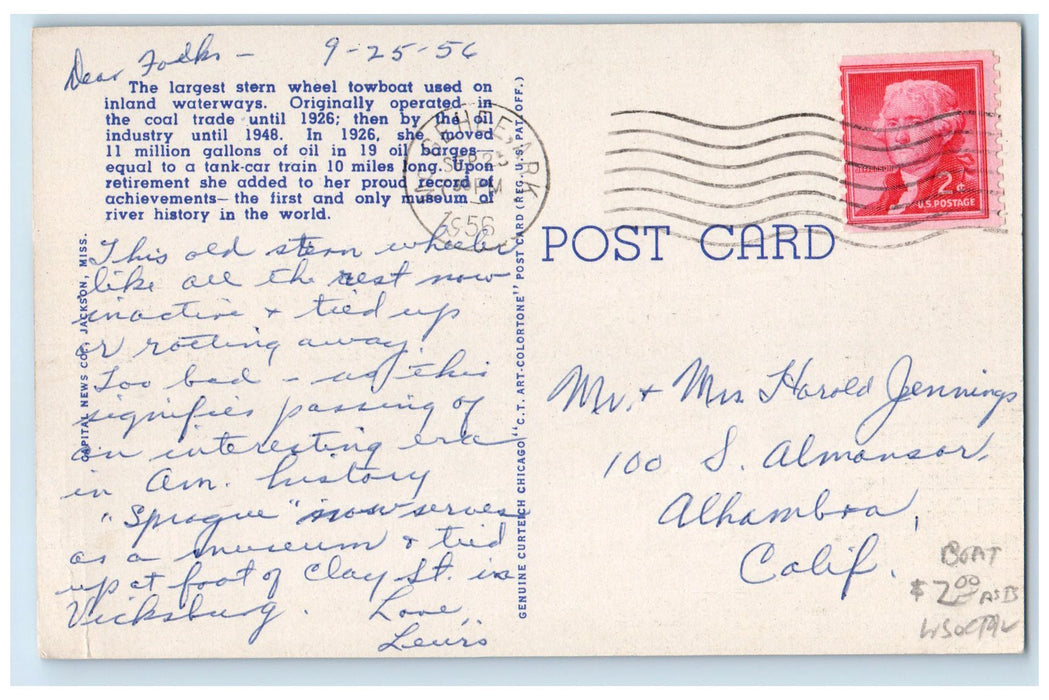 Dear Folks - 9-25-56
The largest stern wheel towboat used on
inland waterways. Originally operated in
the coal trade until 1926; then by the oil
industry until 1948. In 1926, she moved
11 million gallons of oil in 19 oil barges—
equal to a tank-car train 10 miles long. Upon
retirement she added to her proud record of
achievements— the first and only museum of
river history in the world.
This old stern wheeler
like all the rest now
inactive + tied up
or rotting away.
Too bad - as this
signifies passing of
an interesting era
in Am. history
"Sprague" now serves
as a museum & tied
up at foot of Clay St. in
Vicksburg. Love,
Lewis
CAPITAL NEWS CO., JACKSON, MISS.
GENUINE CURTEICH CHICAGO "C.T. ART-COLORTONE" POST CARD (REG. U.S. PAT. OFF.)
ARK
SEP 25
PM
1956
2¢
U.S. POSTAGE
POST CARD
Mr. + Mrs Harold Jennings
100 S. Almansor,
Alhambra,
Calif.
BOAT
$2.00 ASB